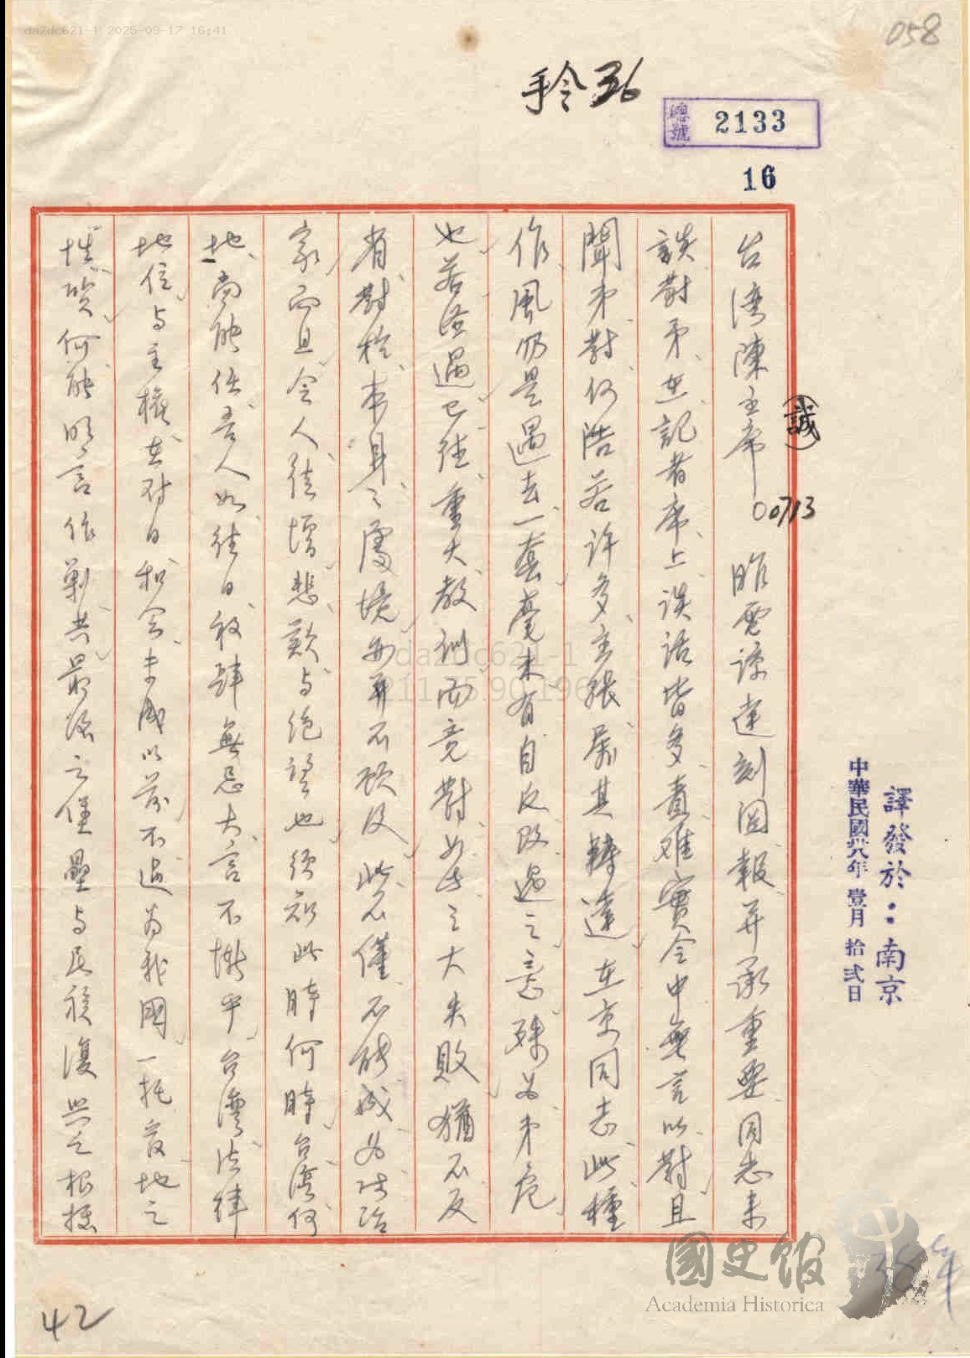 da2dc621-1 2025-09-17 16:41
058
手令36
總號 2133
16
(誠)
00713
譯發於：南京
中華民國卅八年 壹月 拾弍日
台灣陳主席 昨電諒達刻閱報並承重要同志來
談對弟在記者席上談話皆多責难實令中無言以對且
聞弟對何浩若許多主張屬其轉達在京同志此種
作風仍是過去一套毫未有自反改過之意殊為弟危
也若經過已往重大教訓而竟對如此之大失敗猶不反
省對於本身之處境亦再不顧及此不僅不能成為政治
家而且令人徒增悲歎与絕望也須知此時何時台灣何
地尚能任吾人如往日放肆無忌大言不慚乎台灣法律
地位与主權在对日和会未成以前不过為我國一托管地之
性质何能明言作剿共最後之堡壘与民族復興之根據
da2dc621-1
42
38年
國史館
Academia Historica